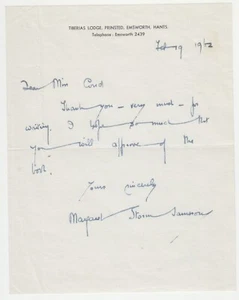 TIBERIAS LODGE, PRINSTED, EMSWORTH, HANTS.
Telephone: Emsworth 2439
Feb 9
Dear Miss
Thank you – very much – for
writing. I hope so much that
you will approve of the
book.
Yours sincerely
Margaret Storm Jameson